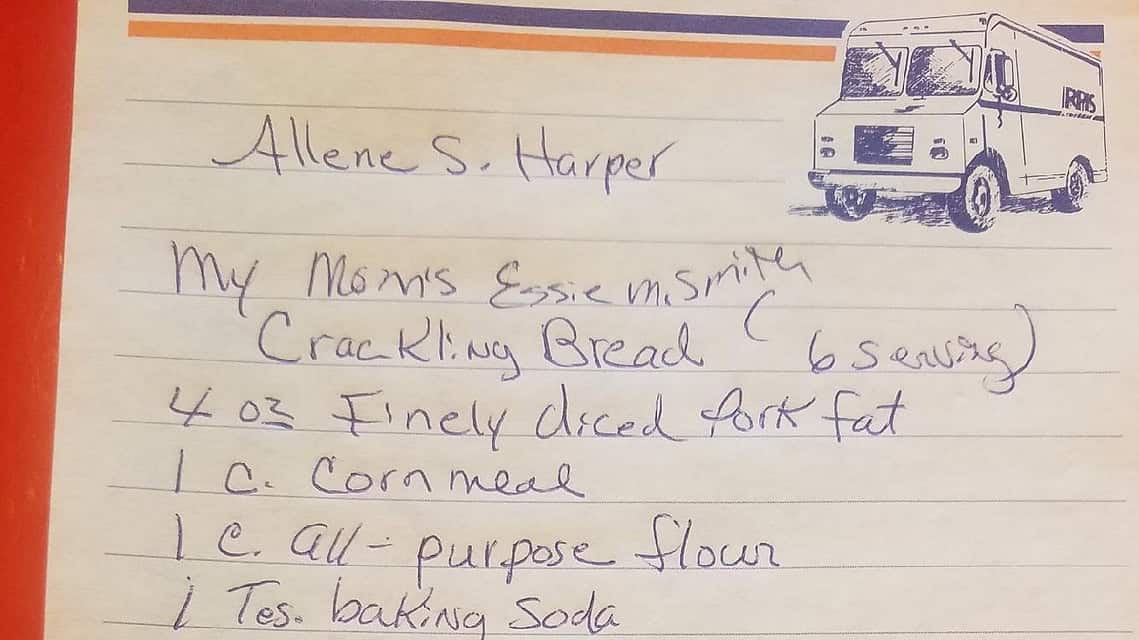 Allene S. Harper
My Mom's Essie M. Smith
Crackling Bread (6 serving)
4 oz Finely diced Pork fat
1 c. Corn meal
1 c. all-purpose flour
1 Tes. baking Soda